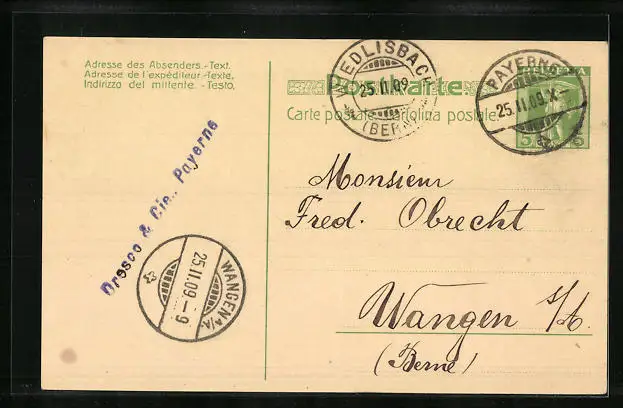 Adresse des Absenders.-Text.
Adresse de l'expéditeur.-Texte.
Indirizzo del mittente. -Testo.
Postkarte
Carte postale. Cartolina postale.
WIEDLISBACH
25.II.09
(BERN)
PAYERNE
25.II.09.X-
HELVETIA
5 5
Drosco & Cie., Payerne
Monsieur
Fred. Obrecht
Wangen s/A.
(Berne)
WANGEN A/A.
25.II.09.-9